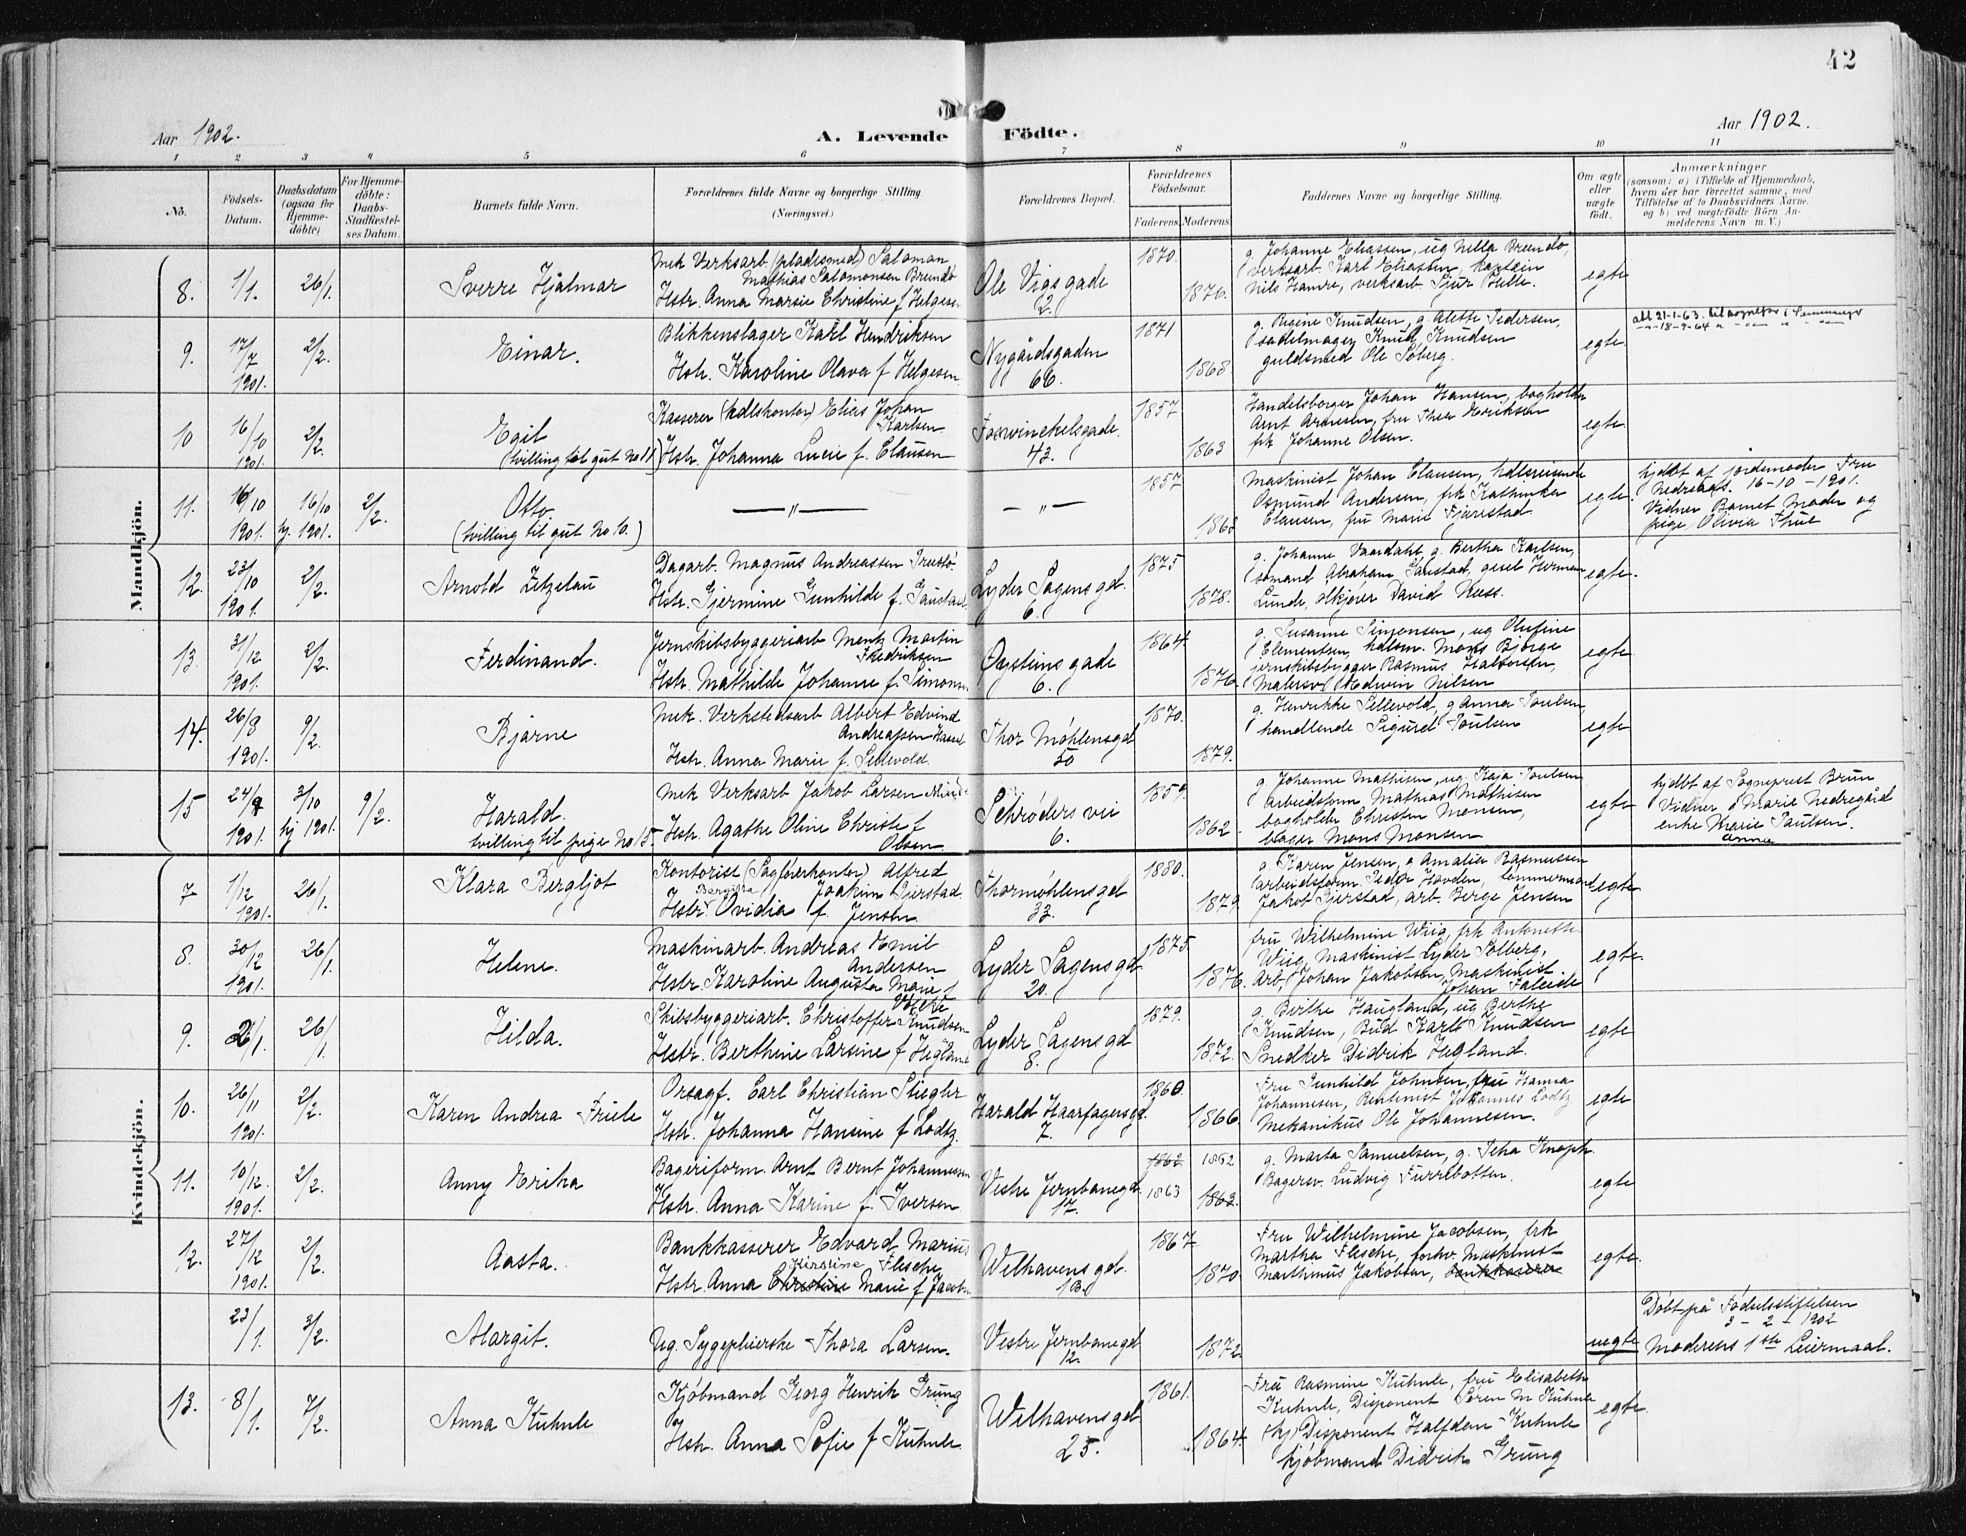 42
Aar 1902.
A. Levende Födte.
Aar 1902.
1 2 3 4 5 6 7 8 9 10 11
No.
Födsels-Datum.
Daabsdatum (ogsaa for Hjemme-döbte)
For Hjemme-döbte: Daabs-Stadfestel-ses Datum.
Barnets fulde Navn.
Forældrenes fulde Navne og borgerlige Stilling (Næringsvei.)
Forældrenes Bopæl.
Forældrenes Födselsaar.
Faderens. Moderens.
Faddernes Navne og borgerlige Stilling.
Om ægte eller uægte födt.
Anmærkninger
(saasom: a) i Tilfælde af Hjemmedaab, hvem der har forrettet samme, med Tilföielse af to Daabsvidners Navne. og b) ved uægtefödte Börn An-melderens Navn m. V.)
Mandkjön.
8. 1/1. 26/1. Sverre Hjalmar
Mek Verksarb (pladesmed) Salomon
Mathias Salomonsen Brundö
Hstr. Anna Marie Christine f Helgesen
Ole Vigs gade
12.
1870.
1876.
g. Johanne Eliassen, ug Nilla Brendö,
verksarb. Karl Eliassen, kaptein
Nils Hamre, verksarb Sjur Helle.
egte
9. 17/7 1901. 2/2. Einar.
Blikkenslager Karl Hendriksen
Hstr. Karoline Olava f Helgesen
Nygårdsgaden
66.
1871
1868.
g. Regine Knudsen, g. Alette Pedersen,
sadelmager Knud Knudsen
guldsmed Ole Söberg.
egte.
10 16/10 1901. 2/2. Egil
tvilling til gut No 11
Kasserer (hdlskontor) Elias Johan
Karlsen
Hstr. Johanna Lucie f. Clausen
Fosswinckelsgade.
43.
1857
1863
Handelsborger Johan Hansen, bogholder
Arnt Arnesen, fru Thea Eriksen
frk Johanne Olsen.
egte.
11. 16/10 1901. 16/10 hj. 1901. 2/2. Otto
(tvilling til gut No 10.)
— " —
— " —
1857.
1863
Maskinist Johan Clausen, hdlsreisende
Osmund Andersen, frk Kathinka
Clausen, fru Marie Fjærestad
egte.
hjdbt af jordemoder Fru
Nedreaas. 16-10-1901.
Vidner Barnet Moder og
pige Olivia Thue
12. 23/10 1901. 2/2. Arnold Zetzelau
Dagarb. Magnus Andreassen
Hstr. Gjermine Gunhilde f.
Lyder Sagens gd.
6.
1875
1878.
g. Johanne Vaardahl, g. Bertha Karlsen,
sömand Abraham
Lunde, ölkjører David Ness.
egte.
13. 31/12 1901. 2/2. Ferdinand.
Jernskibsbyggeriarb Mentz Martin
Fredriksen
Hstr. Mathilde Johanne f. Simonsen
Øysteins gade
6.
1864.
1876.
g. Susanne Simonsen, ug Olufine
Clementsen, hdlsm. Mons Bjørge
jernskibsbygger Rasmus Halvorsen,
Malersv. Edwin Nilsen
egte
14. 26/8 1901. 9/2. Bjarne
Mek. Verkstedsarb Albert Edvind
Andreassen
Hstr. Anna Marie f. Sellevold.
Thor Møhlensgd
50
1870.
1879.
g. Henrikke Sellevold, g Anna Poulsen,
handlende Sigurd Poulsen
egte
15 24/9 1901. 3/10 hj 1901. 9/2. Harald.
tvilling til pige No 15.
Mek Verksarb Jakob Larsen
Hstr. Agathe Oline Christe f
Olsen
Schrøders vei
6.
1862.
g Johanne Mathisen, ug. Kaja Poulsen
arbeidsform Mathias Mathisen
bogholder Christen Monsen,
Mons Monsen
egte
hjdbt af Sogneprest Brun
Vidner Marie Nedregård
enke Marie Paulsen.
Anna
Kvindekjön.
7 1/12 1901. 26/1. Klara Bergljot
Kontorist (Sagførerkontor) Alfred
Joakim Gjerstad
Hstr. Ovidia f. Jensen
Thormøhlensgd
33.
1880.
1879.
g Karen Jensen, g Amalia Rasmussen
arbeidsform. Peder Hovden, tømmermand
Jakob Gjerstad, arb. Berge Jensen
egte
8. 30/12 1901. 26/1. Helene.
Maskinarb. Andreas Emil
Andersen
Hstr. Karoline Augusta Marie f
Lyder Sagens gd
20.
1875.
1876.
fru Wilhelmine Wiig, frk Antonette
Wiig, Maskinist Lyder Solberg,
Arb. Johan Jakobsen, Maskinist
Johan Faleide
egte.
9. 2/1. 26/1 Hilda.
Skibsbyggeriarb. Christoffer Knudsen
Hstr. Berthine Larsine f Hegland
Lyder Sagens gd
8.
1879.
1872.
g. Berthe Haugland, ug Berthe
Knudsen, Bud Karl Knudsen
Snedker Didrik Hegland.
egte
10. 26/11 1901. 2/2. Karen Andrea Friele
Orsagf. Carl Christian Stiegler
Hstr. Johanna Hansine f Lodtz.
Harald Haarfagersgd.
7.
1860.
1866.
Fru Gunhild Johnsen, fru Hanna
Johannesen, Rentenist Johannes Lodtz
Mekanikus Ole Johannesen.
egte
11. 10/12. 1901. 2/2. Anny Erika
Bageriform. Arnt Bernt Johannessen
Hstr. Anna Karine f. Iversen
Vestre Jernbanegd.
17.
1862 1862
1863 1863.
g. Marta Samuelsen, g. Knoph
Bagersv. Ludvig Furrebotten.
egte
12. 27/12 1901. 2/2. Aasta.
Bankkasserer Edvard Marius
Kirstine Flesche
Hstr. Anna Christine Marie f. Jacobsen
Welhavens gd.
1867
1870.
Fru Wilhelmine Jacobsen, frk
Martha Flesche, forhv. Maskinist
Marthinus Jakobsen, bankkasserer
egte.
23/1. 3/2. Margit.
Ug. Sygepleierske Thora Larsen.
Vestre Jernbanegd
12.
1872.
uegte
Döbt på Födselsstiftelsen
3-2-1902
Moderens 1ste Leiermaal.
13. 8/1. 7/2. Anna Kuhnle
Kjøbmand Georg Henrik Grung
Hstr. Anna Sofie f Kuhnle
Welhavens gd
25.
1861.
1864.
Fru Rasmine Kuhnle, fru Elisabeth
Kuhnle, Disponent Søren M Kuhnle
Disponent Halfdan Kuhnle
kjøbmand Didrik Grung
egte.